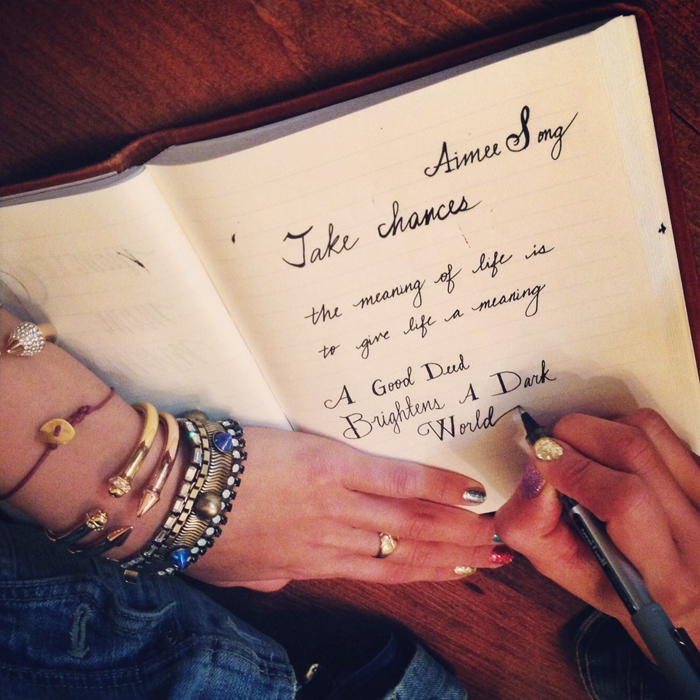 Aimee Song
Take chances
the meaning of life is
to give life a meaning
A Good Deed
Brightens A Dark
World